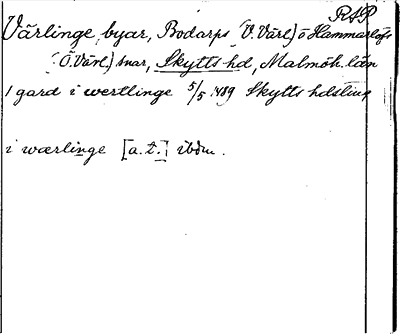 RAP
Värlinge, byar, Bodarps (V. Värl) o Hammarlövs
(Ö. Värl.) snar, Skytts hd, Malmöh. län
1 gard i wertlinge 5/5 1489 Skytts hdsting
i wærlinge [a. t.] ibdm.